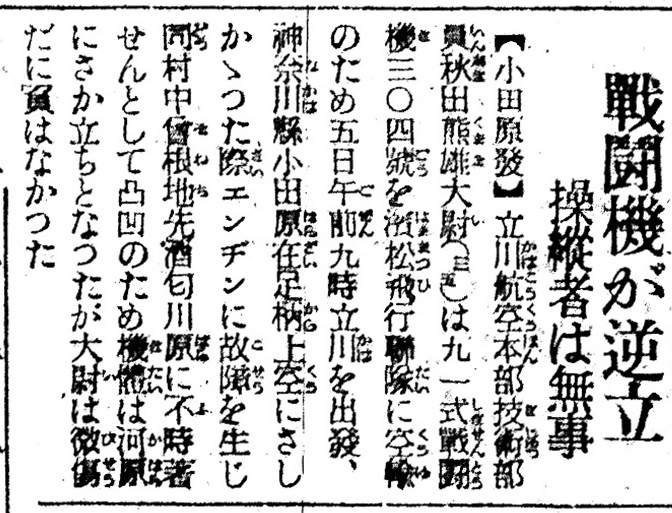 戰闘機が逆立
操縱者は無事
【小田原發】立川航空本部技術部
員秋田熊雄大尉(三五)は九一式戰闘
機三〇四號を濱松飛行聯隊に空輸
のため五日午前九時立川を出發、
神奈川縣小田原在足柄上空にさし
かゝつた際エンヂンに故障を生じ
同村中曾根地先酒匂川原に不時著
せんとして凸凹のため機體は河原
にさか立ちとなつたが大尉は微傷
だに負はなかつた